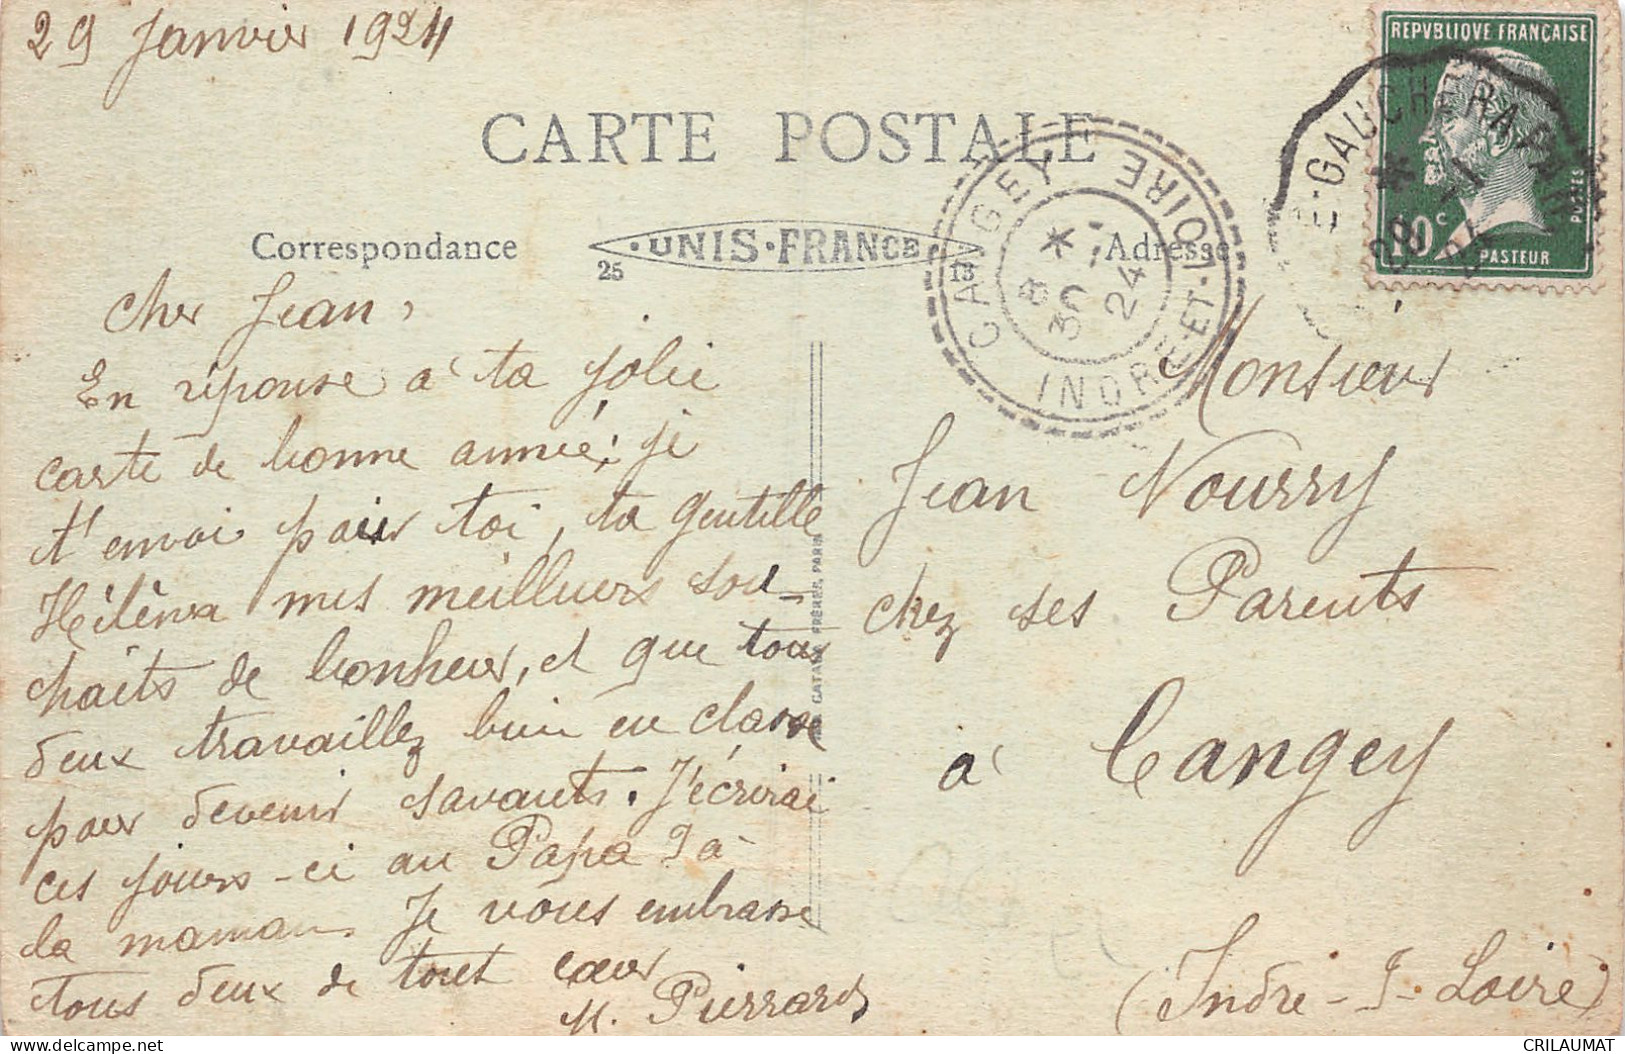 29 Janvier 1924
REPVBLIQUE FRANÇAISE
10c
POSTES
PASTEUR
GAUCHE
CARTE POSTALE
CANGEY
INDRE-ET-LOIRE
8 *
30 -1
24
Correspondance
UNIS-FRANCE
25
13
Adresse
Cher Jean,
En réponse à ta jolie
carte de bonne année, je
t'envoi pour toi, ta gentille
Héléna mes meilleurs sou_
haits de bonheur, et que tous
deux travaillez bien en classe
pour devenir savants. J'écrirai
ces jours-ci au Papa & à
la maman. Je vous embrasse
tous deux de tout cœur
M. Pierrard
CATALA FRÈRES, PARIS
Monsieur
Jean Nourry
chez ses Parents
à Cangey
(Indre-&-Loire)
CRILAUMAT